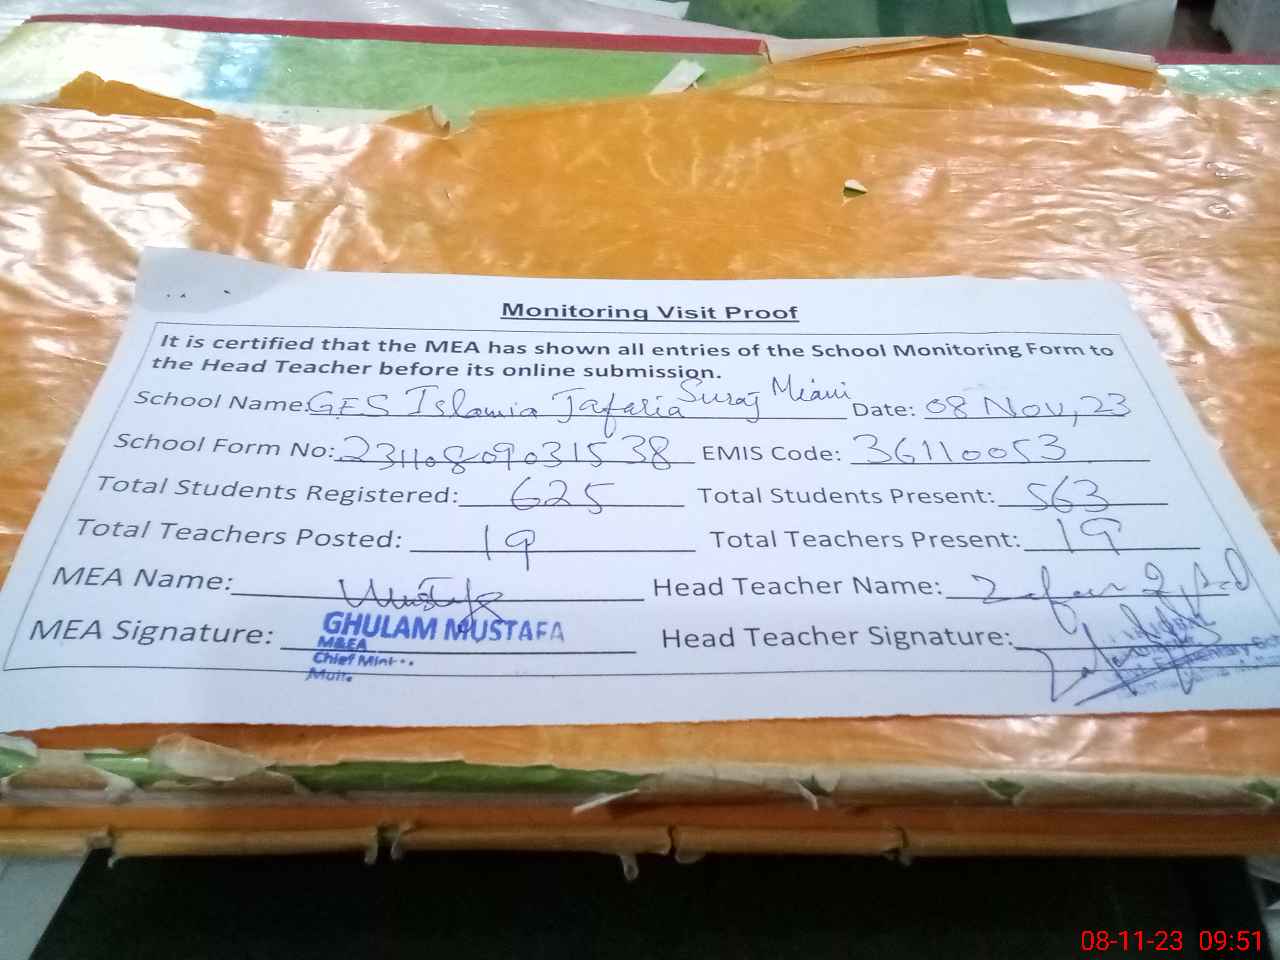 Monitoring Visit Proof
It is certified that the MEA has shown all entries of the School Monitoring Form to
the Head Teacher before its online submission.
School Name: GES Islamia Jafaria Suraj Miani Date: 08 Nov, 23
School Form No: 23110809031538 EMIS Code: 36110053
Total Students Registered: 625 Total Students Present: 563
Total Teachers Posted: 19 Total Teachers Present: 19
MEA Name: Mustafa Head Teacher Name: Zafar
MEA Signature: Head Teacher Signature:
GHULAM MUSTAFA
M&EA
Chief
08-11-23 09:51